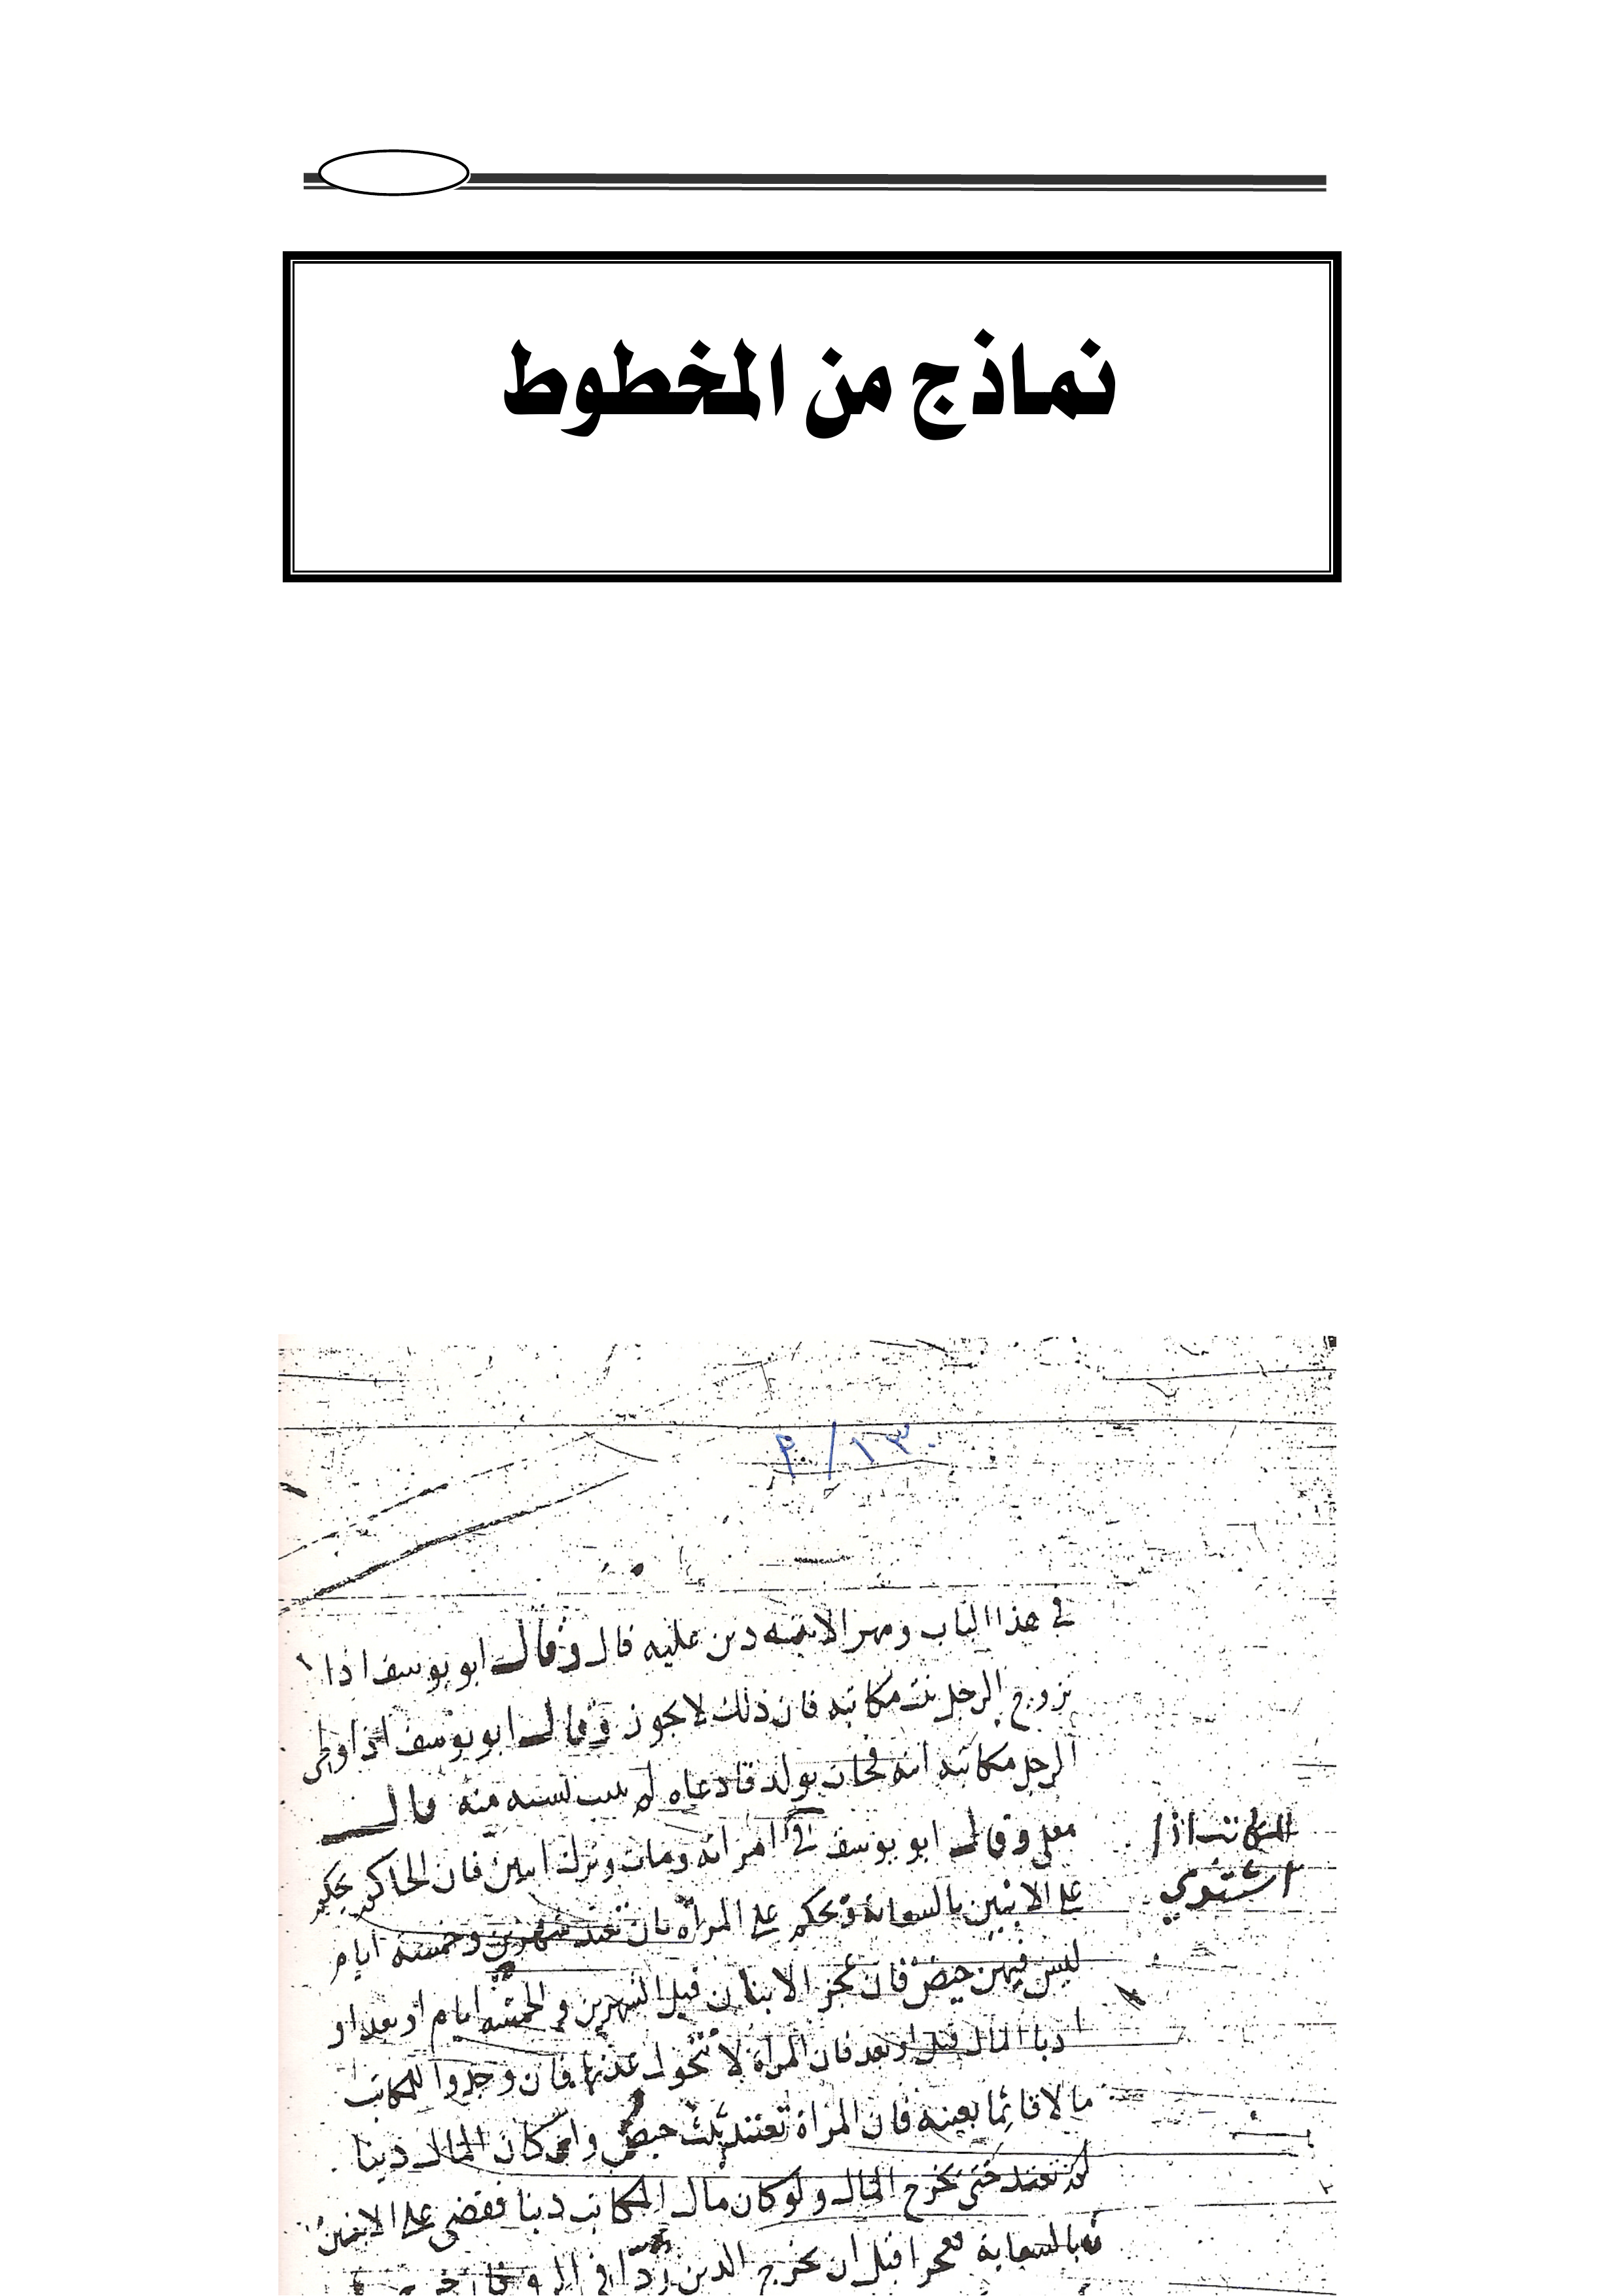 نماذج من المخطوط
١٣٠/م
في هذا الباب ومهر الابنة دين عليه قال وقال ابو يوسف اذا
تزوج الرجل بنت مكاتبه فان ذلك لا يجوز وقال ابو يوسف اذا وطى
الرجل مكاتبة ابنه فجات بولد فادعاه لم يثبت نسبه منه قال
المكاتب اذا
معلى وقال ابو يوسف في امراته ومات وترك ابنين فان الحاكم يحكم
اشتري
على الابنين بالسعاية ويحكم على المراة بان تعتد شهرين وخمسة ايام
ليس فيهن حيض فان عجز الابنان قبل الشهرين والخمسة ايام او بعد او
اديا المال قبل او بعد فان المراة لا تتحول عدتها فان وجدوا للمكاتب
مالا قائما بعينه فان المراة تعتد بثلث حيض وان كان المال دينا
لم تعتد حتى يخرج المال ولو كان مال المكاتب دينا فقضى على الابنين
بالسعاية فعجزا قبل ان يخرج الدين ردا في الرق فان خرج